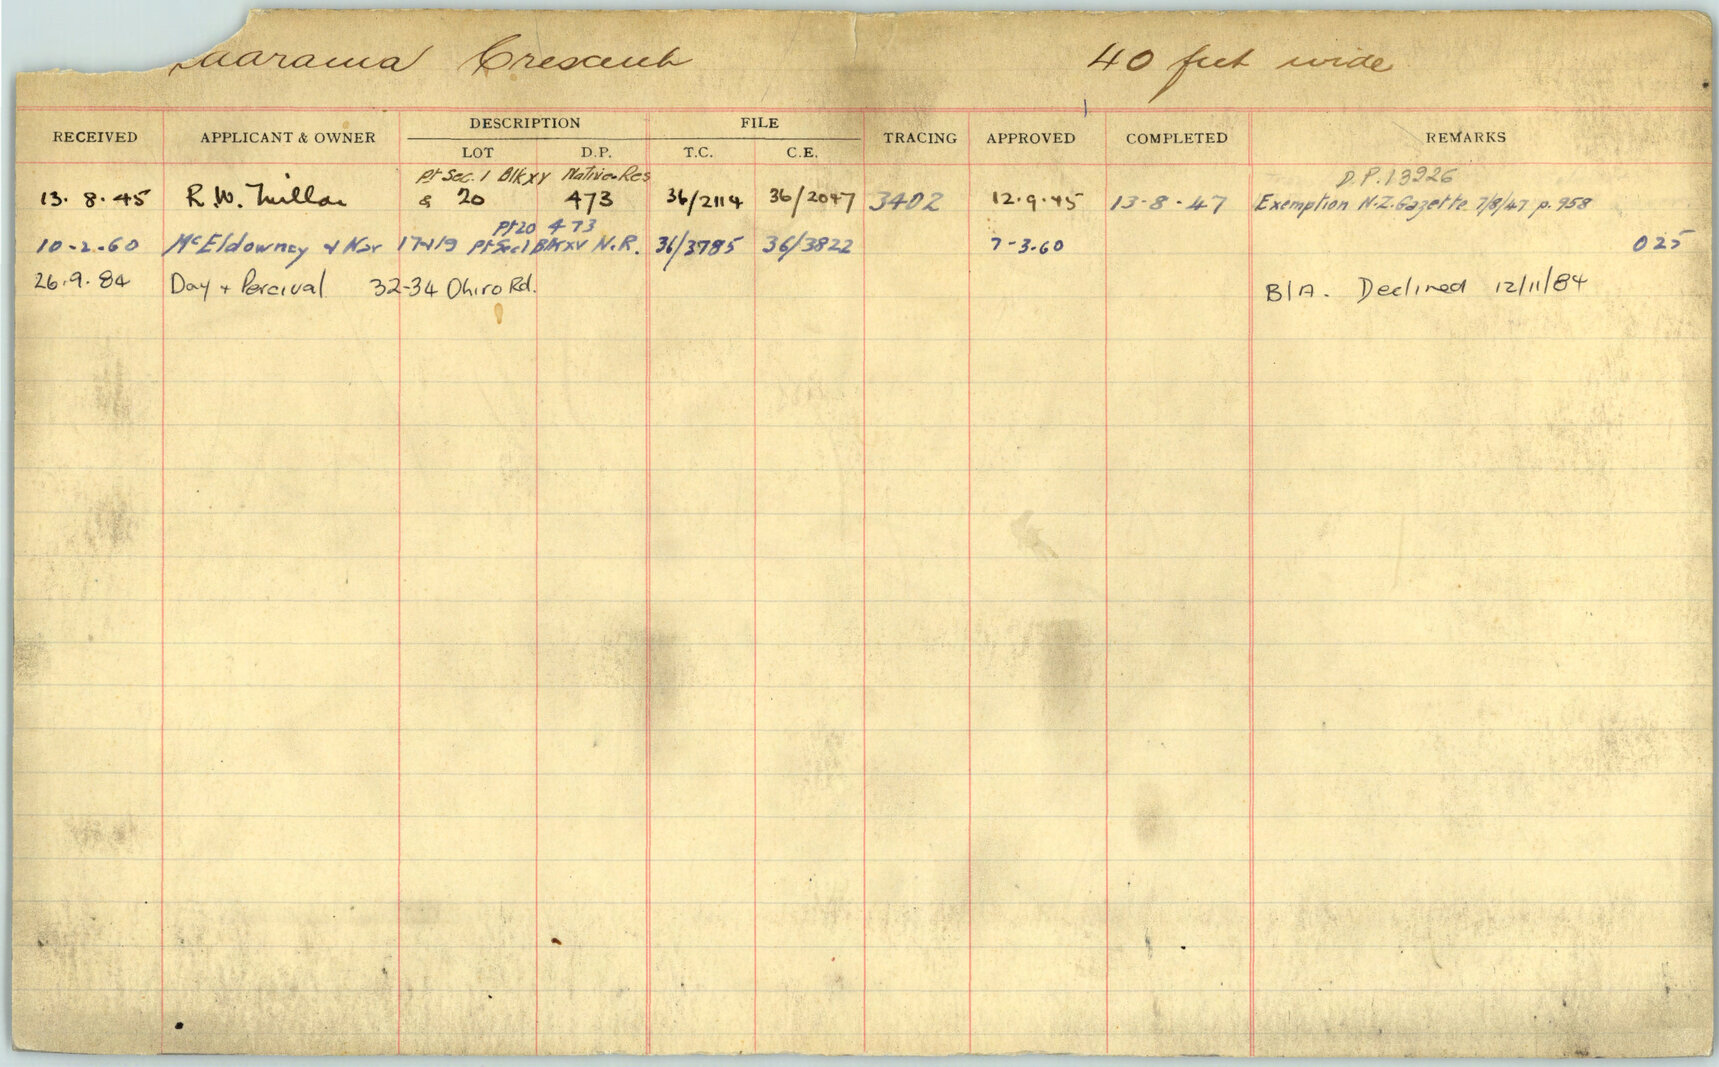 Crescent 40 feet wide
RECEIVED APPLICANT & OWNER DESCRIPTION FILE TRACING APPROVED COMPLETED REMARKS
LOT D.P. T.C. C.E.
Pt Sec. 1 Blk XV Native Res D.P. 13926
13. 8. 45 R. W. & 20 473 36/2114 36/2047 3402 12.9.45 13-8-47 Exemption N.Z. Gazette 7/8/47 p. 958
Pt 20 473
10-2-60 McEldowney & 17-19 Pt Sec 1 Blk XV N.R. 36/3785 36/3822 7-3-60 025
26.9.84 Day + Percival 32-34 Ohiro Rd. B/A. Declined 12/11/84